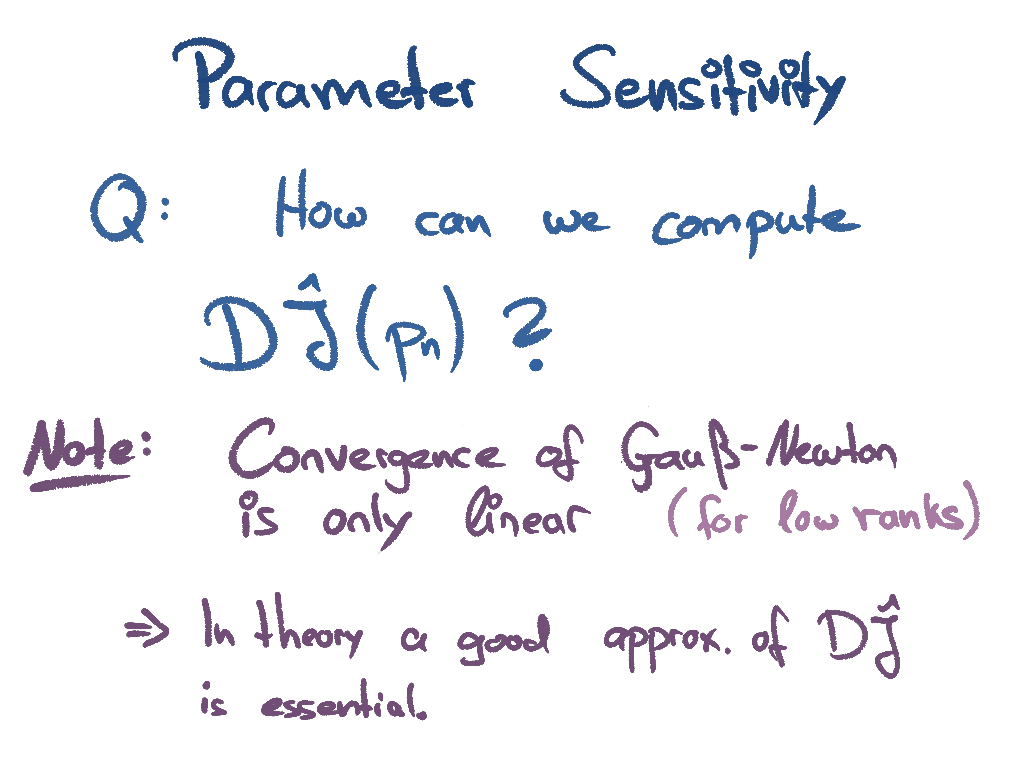 Parameter Sensitivity
Q: How can we compute
DĴ(pₙ) ?
Note: Convergence of Gauß-Newton
is only linear (for low ranks)
⇒ In theory a good approx. of DĴ
is essential.